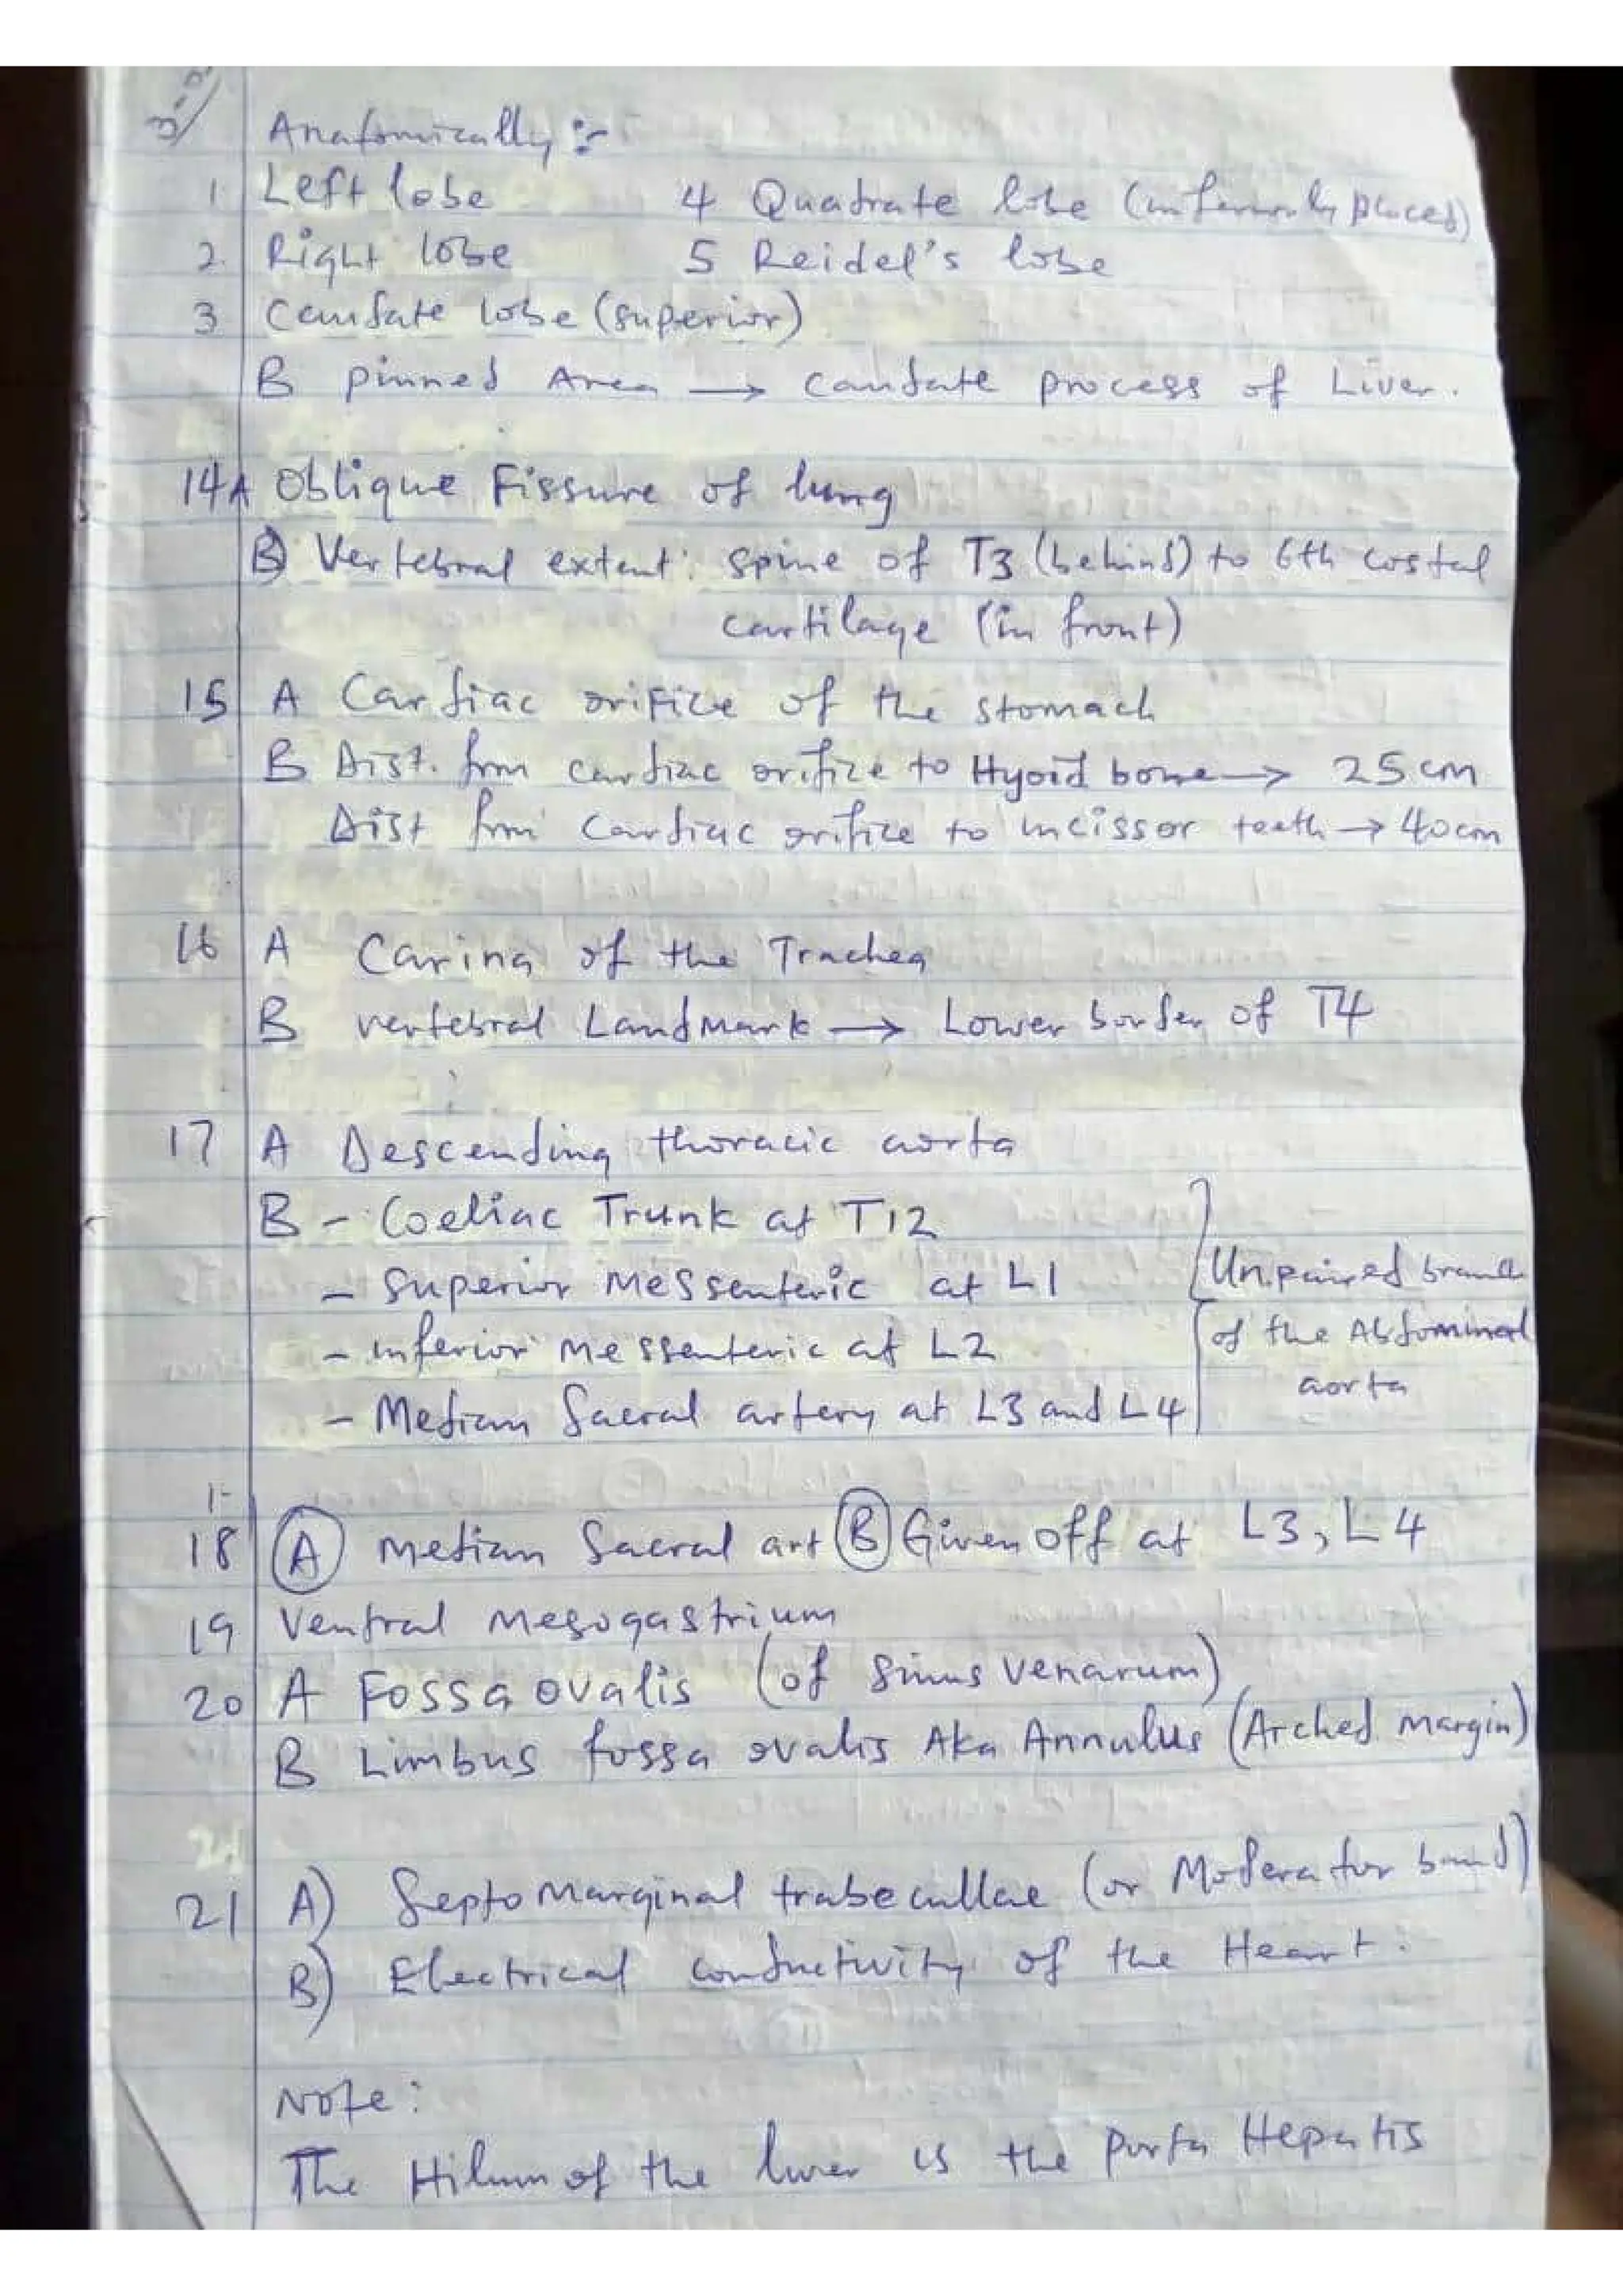 Anatomically :-
1 Left lobe 4 Quadrate lobe (inferiorly placed)
2. Right lobe 5 Reidel's lobe
3 Caudate lobe (superior)
B pinned Area → caudate process of Liver.
14A Oblique Fissure of lung
B) Vertebral extent: spine of T3 (behind) to 6th costal
cartilage (in front)
15 A Cardiac orifice of the stomach
B Dist. from cardiac orifice to Hyoid bone → 25cm
Dist from cardiac orifice to incissor teeth → 40cm
16 A Carina of the Trachea
B vertebral Landmark → Lower border of T4
17 A Descending thoracic aorta
B - Coeliac Trunk at T12
- Superior Messenteric at L1
- inferior messenteric at L2
- Median Sacral artery at L3 and L4
Unpaired branch
of the Abdominal
aorta
18 (A) Median Sacral art (B) Given off at L3, L4
19 Ventral mesogastrium
20 A Fossa ovalis (of sinus venarum)
B Limbus fossa ovalis Aka Annulus (Arched margin)
21
21 A) Septomarginal trabecullae (or Moderator band)
B) Electrical conductivity of the Heart.
Note:
The Hilum of the liver is the Porta Hepatis